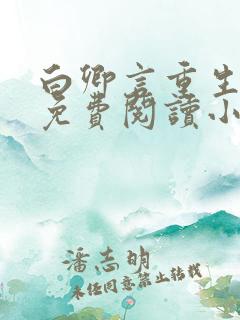 白卿言重生
免費閱讀小
潘志明
未经同意禁止转载